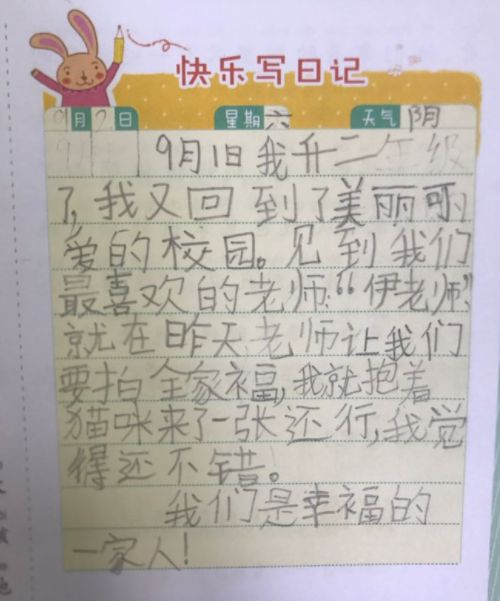 快乐写日记
9月2日 星期六 天气阴
9月1日我升二年级
了,我又回到了美丽可
爱的校园。见到我们
最喜欢的老师:“伊老师”
就在昨天老师让我们
要拍全家福,我就抱着
猫咪来了一张还行,我觉
得还不错。
我们是幸福的
一家人!